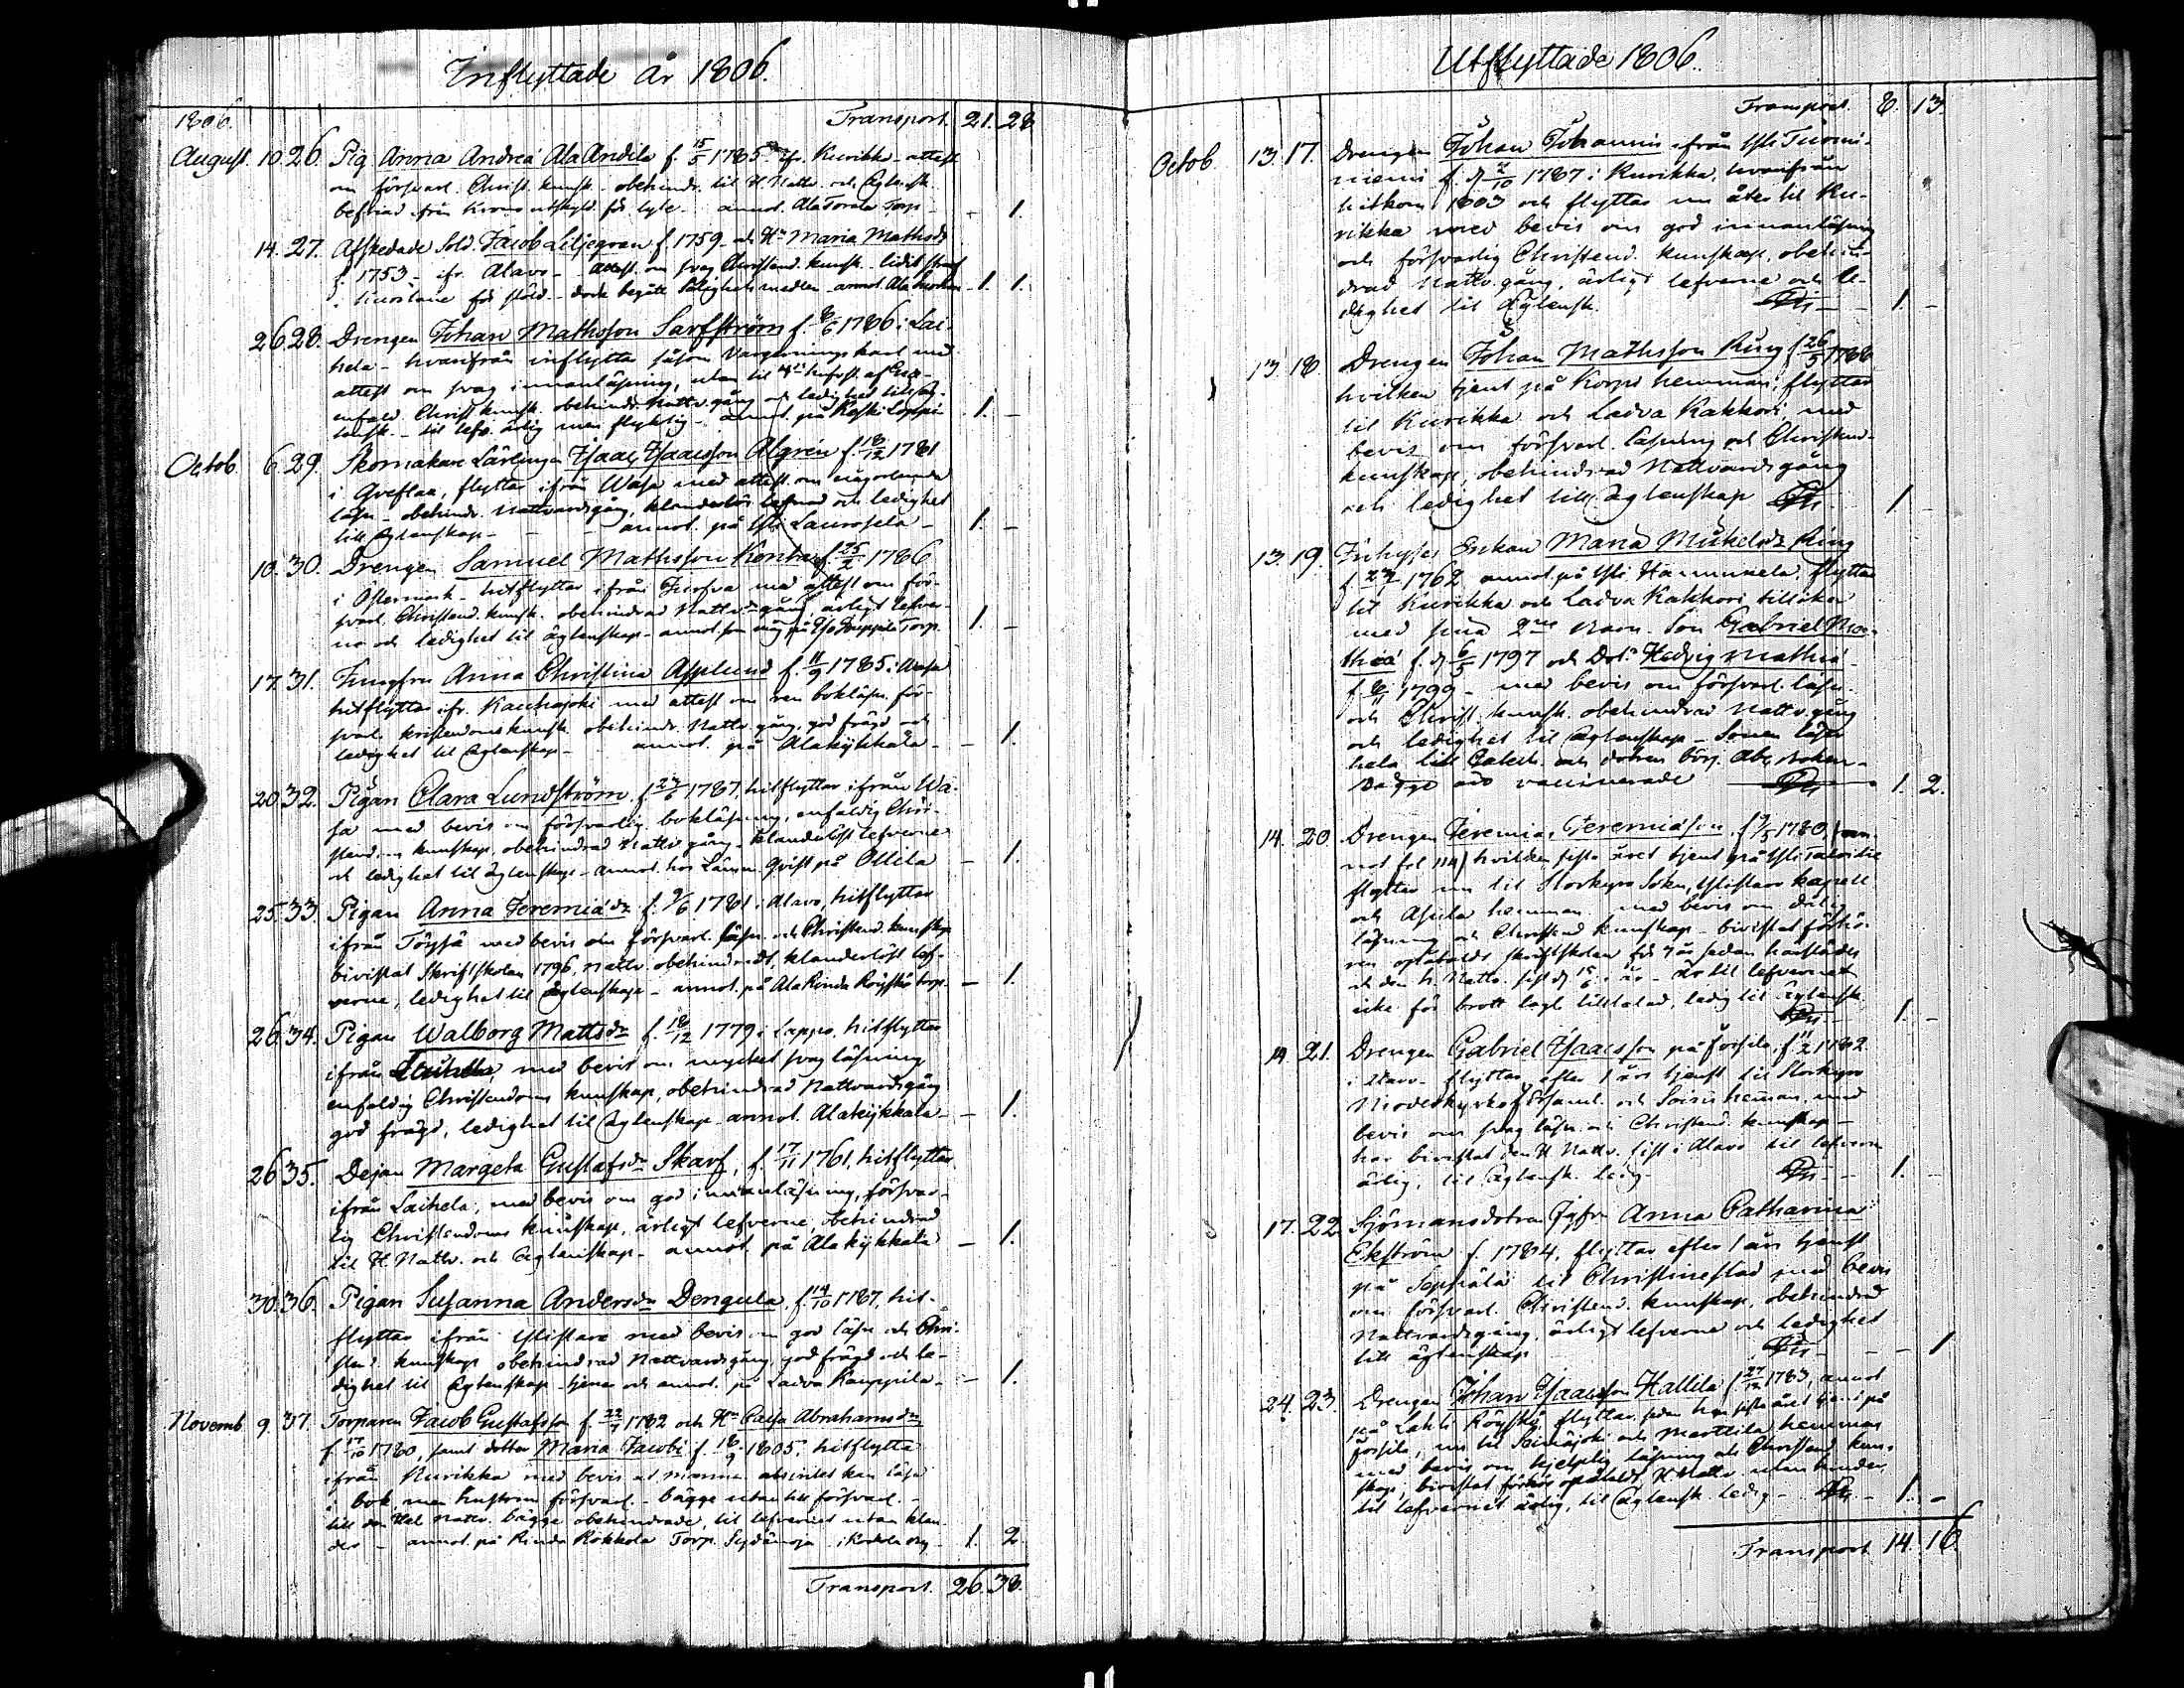 Inflyttade år 1806.
1806. Transport. 21. 28
August. 10. 26. Pig Anna Andreæ Ala Andila f. 15/5 1785 ifr. Kurikka - attest
om försvarl. Christ. kunsk. obehindr. til H. Nattv. och Ägtensk.
befriad från Krono utskyld för lyte - annot. Ala Torp - - 1.
14. 27. Afskedade Sold. Jacob Liljegren f. 1759 - och Hu Maria Mathsdr
f. 1753 - ifr. Alavo - attest om svag Christend. kunsk. lidit straff
i för stöld - dock begått Salighets medlen - annot. Ala - 1. 1.
26. 28. Drengen Johan Mathsson Sarfström f. 8/6 1786 i Lai-
hela - hvarifrån inflyttar såsom Vargeringskarl med
attest om svag innanläsning, utan til
enfald. Christ kunsk. obehindr. Nattv. gång och ledighet till äg-
tensk - til lefv. ärlig men flyktig - annot. på Koski Loppi 1. -
Octob. 6. 29. Skomakare Lärlingen Isaac Isaacsson Algrén f. 18/12 1781
i flyttar ifrån Wasa med attest om någorlunda
läsn - obehindr. Nattvardsgång, klanderlös lefnad och ledighet
till Ägtenskap - - annot. på Ylli Laurosela - 1. -
10. 30. Drengen Samuel Mathsson Kontas f. 25/2 1786
i Östermark - hitflyttar ifrån Jurfva med attest om för-
svarl. Christend. kunsk. obehindrad Nattvdsgång, ärligt lefver-
ne och ledighet til ägtenskap - annot. som på Torp. 1. -
17. 31. Jungfru Anna Christina Asplund f. 11/9 1785 i Wasa
hitflyttar ifr. Kauhajoki med attest om ren bokläsn. för-
svarl. kristendomskunsk. obehindr. Nattv. gång, god frägd och
ledighet til Ägtenskap - annot. på Alakykkälä - - 1.
20. 32. Pigan Clara Lundström f. 27/6 1787, hitflyttar ifrån Wa-
sa med bevis om försvarlig bokläsning, enfaldig Chri-
stend. kunskap, obehindrad Nattv. gång - klanderlöst lefverne
och ledighet til ägtenskap - annot. hos Länsm. Qvist på Ollila - 1.
25. 33. Pigan Anna Jeremiædr f. 9/6 1781 i Alavo, hitflyttar
ifrån Töysä med bevis om försvarl. läsn. och Christend. kunskap
bivistat Skriftskolan 1796, Nattv. obehindradt, klanderlöst lef-
verne, ledighet til ägtenskap - annot. på Ala Rinda Röyskö torp. - 1.
26. 34. Pigan Walborg Mattsdr f. 18/12 1779 i Lappo, hitflyttar
ifrån med bevis om mycket svag läsning
enfaldig Christendoms kunskap, obehindrad Nattvardsgång
god frägd, ledighet til Ägtenskap - annot. Alakykkälä - 1.
26. 35. Dejan Margeta Gustafsdr Skarf, f. 17/11 1761, hitflyttar
ifrån Laihela, med bevis om god innanläsning, försvar-
lig Christendoms kunskap, ärligt lefverne, obehindrad
til H. Nattv. och Ägtenskap - annot. på Alakykkälä - 1.
30. 36. Pigan Susanna Andersdr Dengula, f. 14/10 1787, hit-
flyttar ifrån Ylistaro med bevis om god läsn och Chri-
stend. kunskap obehindrad Nattvardsgång, god frägd och le-
dighet til Ägtenskap - tjenar och annot. på Ladva Kauppila - - 1.
Novemb. 9. 37. Torparen Jacob Gustafsson f. 22/7 1782 och Hu Caisa Abrahamsdr
f. 17/10 1780, samt dotter Maria Jacobi f. 18/9 1805, hitflytta
ifrån Kurikka med bevis at mannen kan läsa
i bok, men hustrun försvarl. - bägge utantill försvarl. -
till den Hel. Nattv. bägge obehindrade, til lefvernet utan klan-
der - annot. på Rinda Kokkola Torp. 1. 2.
Transport. 26. 38.
Utflyttade 1806.
Transport. 8. 13.
Octob. 13. 17. Drengen Johan Johannis ifrån Ylli Tuomi-
niemi f. d 2/10 1787 i Kurikka, hvarifrån
hitkom 1803 och flyttar nu åter til Ku-
rikka med bevis om god innanläsning
och försvarlig Christend. kunskap, obehin-
drad Nattv. gång, ärligt lefverne och le-
dighet til Ägtensk. 1. -
13. 18. Drengen Johan Mathsson Ring f. 26/5 1788
hvilken tjent på Korpi hemman, flyttar
til Kurikka och Ladva Kakkori med
bevis om försvarl. läsning och Christend.
kunskap, obehindrad Nattvardsgång
och ledighet till ägtenskap 1
13. 19. Inhyses Enkan Maria Mickelsdr Ring
f. 1762 annot. på Ylli Hannuxela, flyttar
til Kurikka och Ladva Kakkori tillika
med sina 2ne barn. Son Gabriel Ma-
thiæ f. d 6/5 1797 och Dotr Hedvig Mathiæ
f. 8/11 1799 - med bevis om försvarl. läsn.
och Christ. kunsk. obehindrad Nattv. gång
och ledighet til Ägtenskap - Sonen läser
hela lill Catech. och dotren börj. Abc boken -
bägge äro vaccinerade 1. 2.
14. 20. Drengen Jeremias Jeremiæson f. 9/5 1780 (an-
not fol 114) hvilken sista året tjent på Ylli
flyttar nu til Storkyro Sokn, Ylistaro kapell
och Asuila hemman med bevis om dålig
läsning och Christend kunskap - bivistat förhö-
ren skriftskolan för 7 år sedan
och den h. Nattv. sist d 15/6 i år - är til lefvernet
icke för brott lagl. tilltalad, ledig til Ägtensk. 1. -
14. 21. Drengen Gabriel Isaacsson på Jörsilä, f. 11/2 1782
i Alavo - flyttar efter 1 års tjenst til Storkyro
Moderkyrkoförsaml. och hemman, med
bevis om svag läsn. och Christend. kunskap -
har bivistat den H Nattv. sist i Alavo til lefverne
ärlig, til Ägtensk. ledig 1. -
17. 22. Sjömansdotren Jgfr Anna Catharina
Ekström f. 1784, flyttar efter 1 års tjenst
på Seppälä til Christinestad med bevis
om försvarl. Christend. kunskap, obehindrad
Nattvardsgång, ärligt lefverne och ledighet
till ägtenskap - - 1
24. 23. Drengen Johan Isaacsson Hallila f. 27/12 1783, annot
på Lahti Röyskö flyttar, sedan han sista året tjent på
Jörsilä, nu til Seinäjoki och Marttila hemman
med bevis om hjelplig läsning och Christend. kun-
skap, bivistat förhör H Nattv. utan hinder,
til lefvernet ärlig, til Ägtensk. ledig - 1. -
Transport 14. 16.